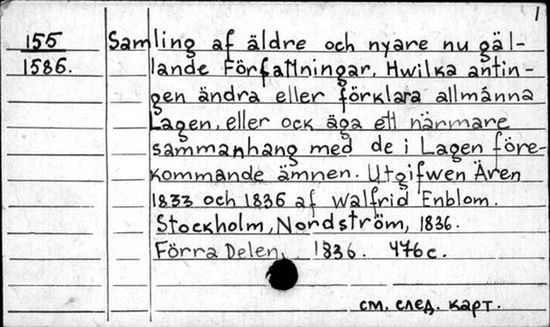 1
155 Samling af äldre och nyare nu gäl-
1586. lande Författningar, Hwilka antin-
gen ändra eller förklara allmánna
Lagen, eller ock äga ett närmare
sammanhang med de i Lagen före-
kommande ämnen. Utgifwen Åren
1833 och 1836 af Walfrid Enblom.
Stockholm, Nordström, 1836.
Förra Delen, 1836. 476 c.
см. след. карт.